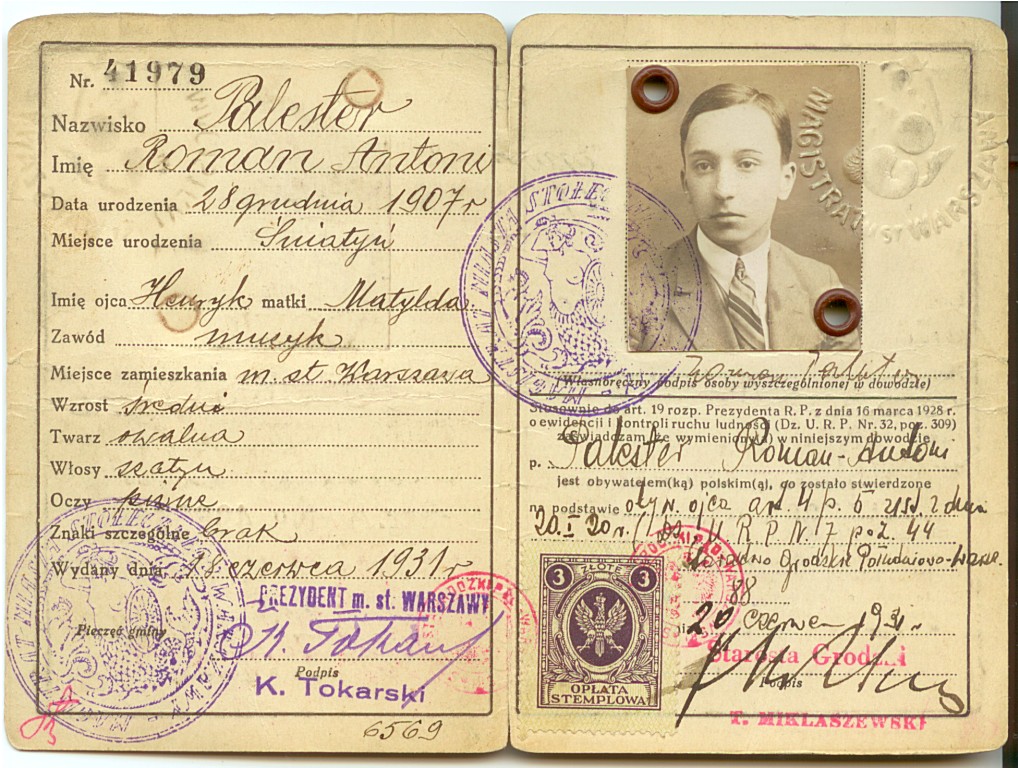 Nr. 41979
Nazwisko Palester
Imię Roman Antoni
Data urodzenia 28 grudnia 1907 r
Miejsce urodzenia Śniatyń
Imię ojca Henryk matki Matylda
Zawód muzyk
Miejsce zamieszkania m. st. Warszawa
Wzrost średni
Twarz owalna
Włosy szatyn
Oczy piwne
Znaki szczególne brak
Wydany dnia 18 czerwca 1931 r
PREZYDENT m. st. WARSZAWY
Pieczęć gminy
Podpis
K. Tokarski
6569
MAGISTRAT M. ST. WARSZAWY
(Własnoręczny podpis osoby wyszczególnionej w dowodzie)
Stosownie do art. 19 rozp. Prezydenta R. P. z dnia 16 marca 1928 r.
o ewidencji i kontroli ruchu ludności (Dz. U. R. P. Nr. 32, poz. 309)
zaświadczam, że wymieniony(a) w niniejszym dowodzie
p. Palester Roman-Antoni
jest obywatelem(ką) polskim(ą), co zostało stwierdzone
na podstawie ojca art. 4 p. 5 ust. z dnia
20.I.20 r. (Dz. U. R. P. N. 7 poz. 44
Starostwo Grodzkie Południowo-Warsz.
88
20 czerwca 1931 r
3 ZŁOTE 3
OPŁATA
STEMPLOWA
Starosta Grodzki
Podpis
T. MIKLASZEWSKI